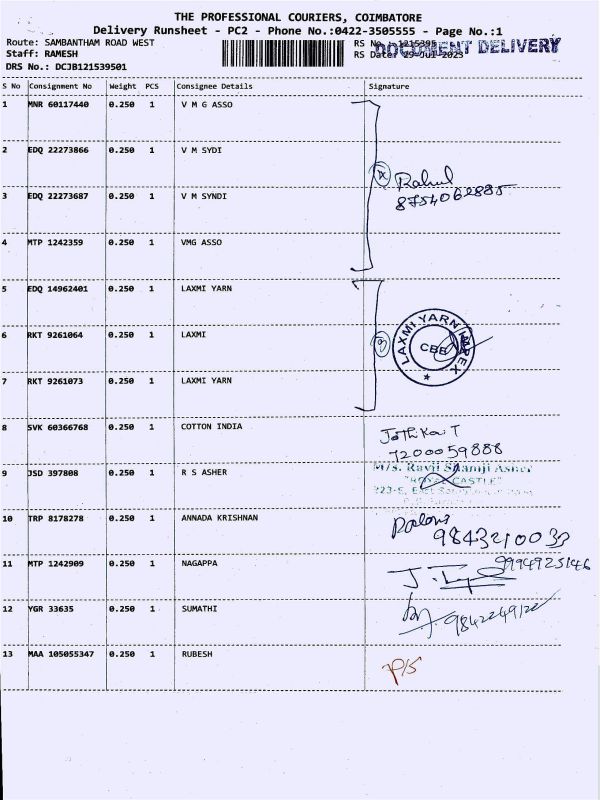 THE PROFESSIONAL COURIERS, COIMBATORE
Delivery Runsheet - PC2 - Phone No.:0422-3505555 - Page No.:1
Route: SAMBANTHAM ROAD WEST RS No.: 1215395
DOCUMENT DELIVERY
Staff: RAMESH RS Date: 29-Jul-2023
DRS No.: DCJB121539501
S No Consignment No Weight PCS Consignee Details Signature
1 MNR 60117440 0.250 1 V M G ASSO
2 EDQ 22273866 0.250 1 V M SYDI
4 Rahul
8754062885
3 EDQ 22273687 0.250 1 V M SYNDI
4 MTP 1242359 0.250 1 VMG ASSO
5 EDQ 14962401 0.250 1 LAXMI YARN
LAXMI YARN IMPEX
CBE
6 RKT 9261064 0.250 1 LAXMI
3
7 RKT 9261073 0.250 1 LAXMI YARN
8 SVK 60366768 0.250 1 COTTON INDIA
Jothika T
7200059888
9 JSD 397808 0.250 1 R S ASHER
M/s. Ravji Shamji Asher
"ROYAL CASTLE"
10 TRP 8178278 0.250 1 ANNADA KRISHNAN
9843210033
11 MTP 1242909 0.250 1 NAGAPPA
9994925146
12 YGR 33635 0.250 1 SUMATHI
13 MAA 105055347 0.250 1 RUBESH
P/S